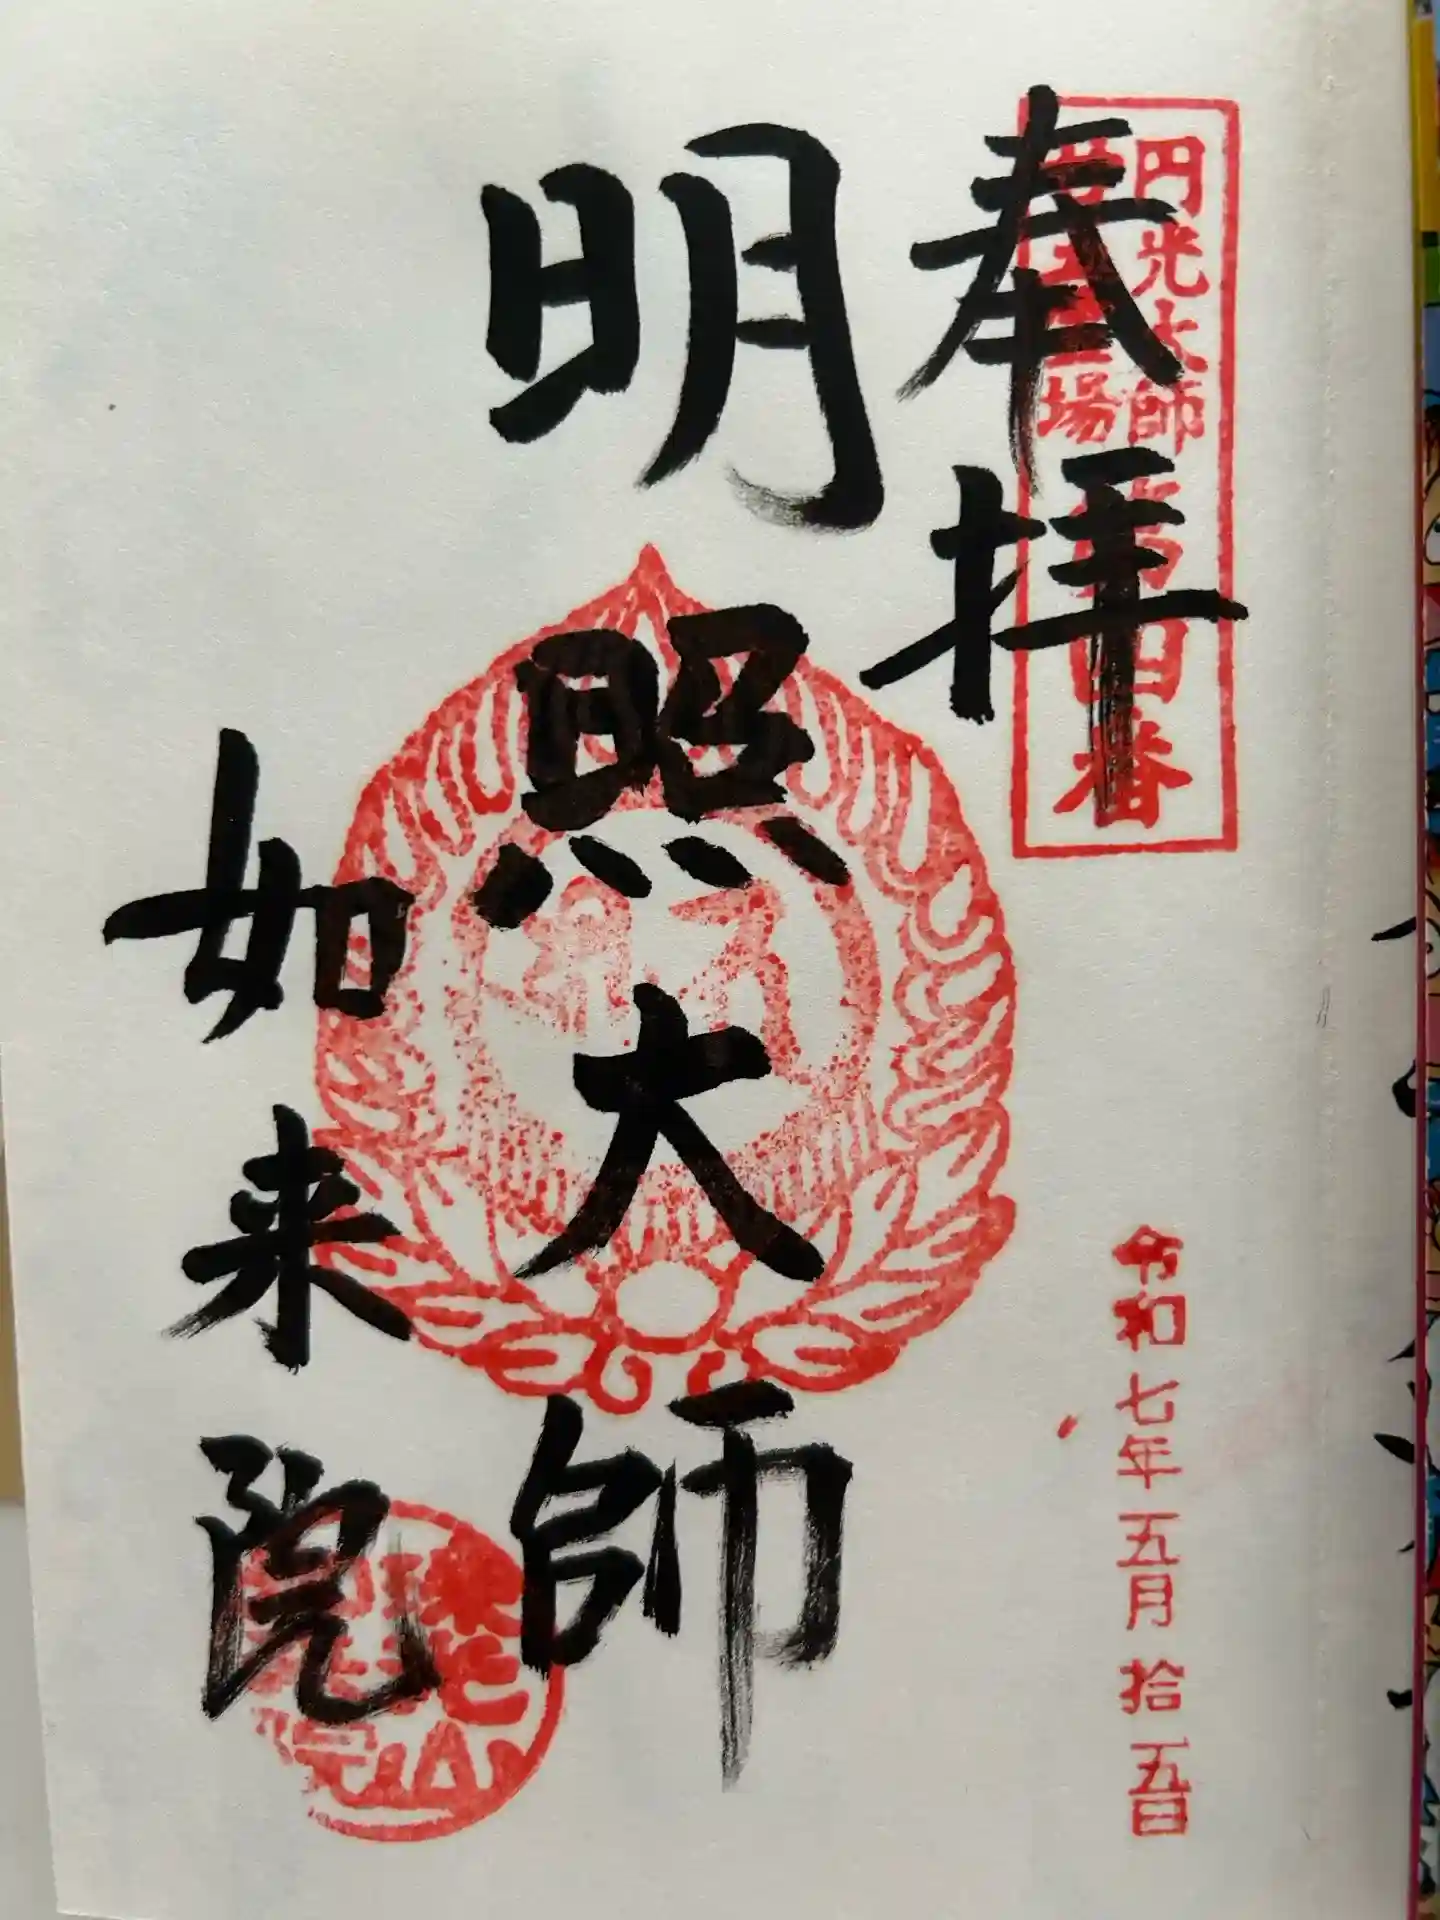 奉拝
円光大師
霊場
第四番
明照大師
如来院
令和七年五月拾五日